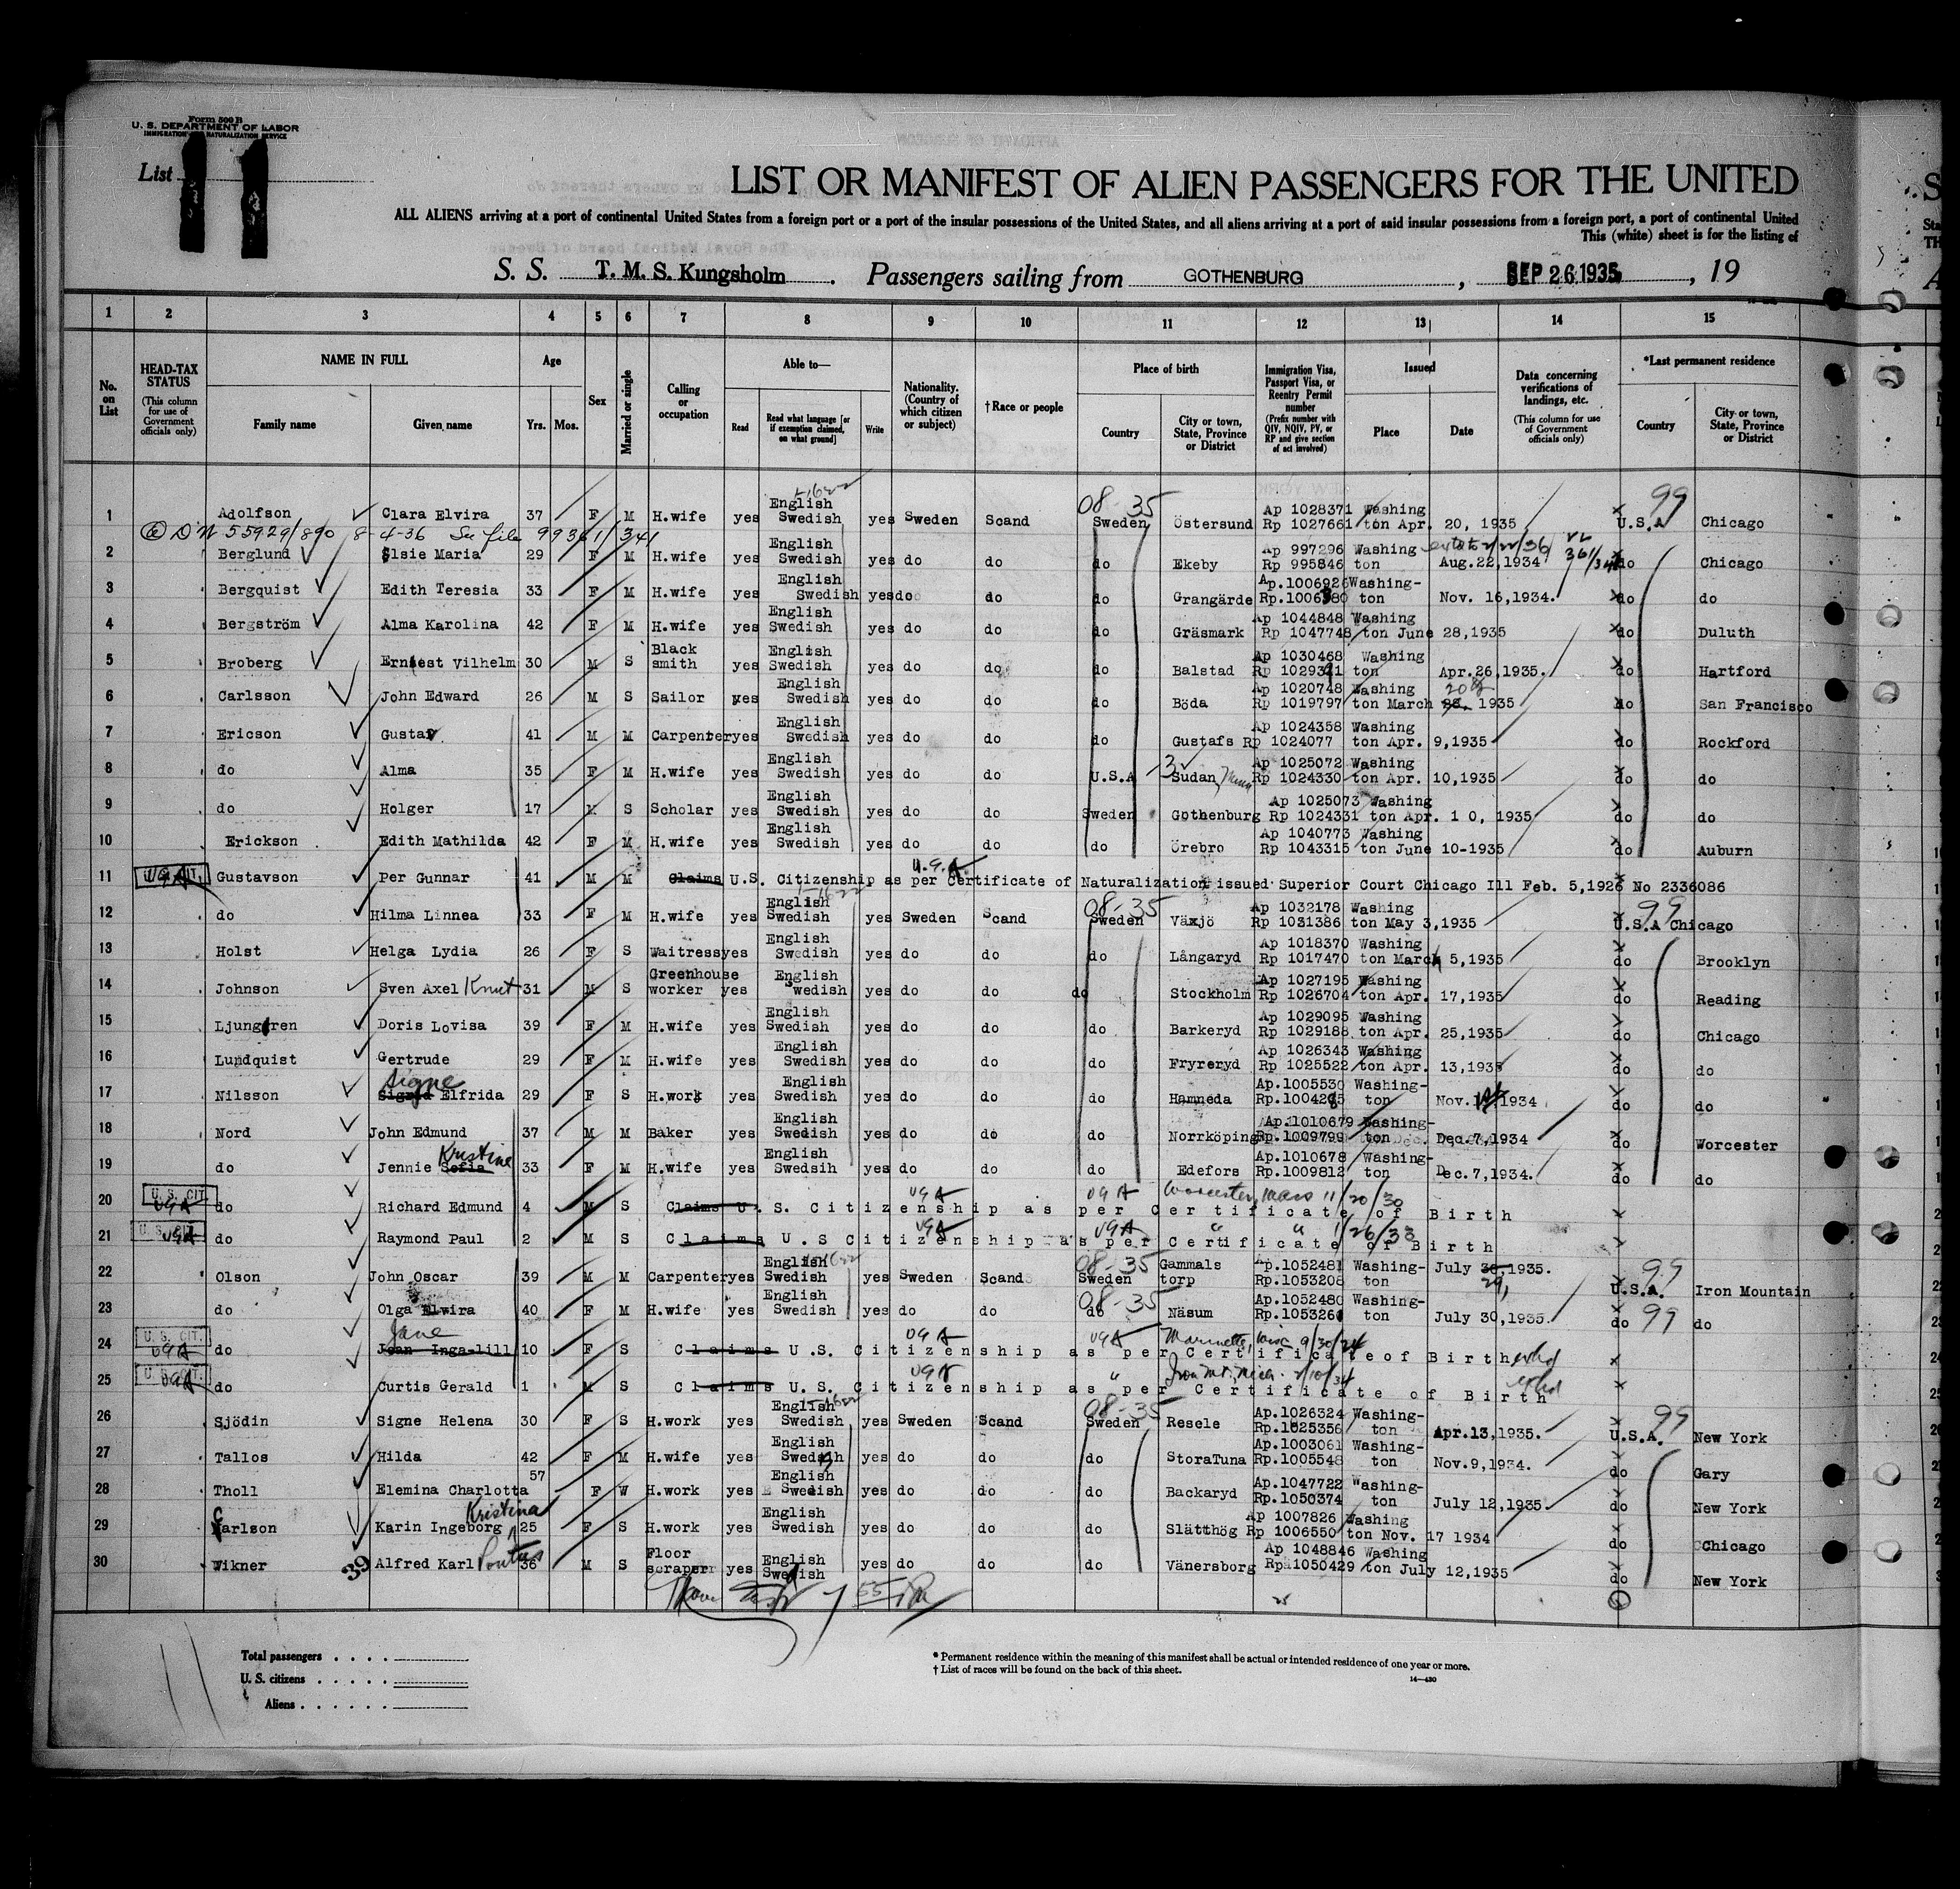 Form 500 B
U. S. DEPARTMENT OF LABOR
IMMIGRATION AND NATURALIZATION SERVICE
List
LIST OR MANIFEST OF ALIEN PASSENGERS FOR THE UNITED
ALL ALIENS arriving at a port of continental United States from a foreign port or a port of the insular possessions of the United States, and all aliens arriving at a port of said insular possessions from a foreign port, a port of continental United
This (white) sheet is for the listing of
S. S. T. M. S. Kungsholm. Passengers sailing from GOTHENBURG, SEP 26 1935, 19
1 2 3 4 5 6 7 8 9 10 11 12 13 14 15
No. on List
HEAD-TAX STATUS (This column for use of Government officials only)
NAME IN FULL Family name Given name
Age Yrs. Mos.
Sex
Married or single
Calling or occupation
Able to— Read Read what language [or if exemption claimed, on what ground] Write
Nationality. (Country of which citizen or subject)
†Race or people
Place of birth Country City or town, State, Province or District
Immigration Visa, Passport Visa, or Reentry Permit number (Prefix number with QIV, NQIV, PV, or RP and give section of act involved)
Issued Place Date
Data concerning verifications of landings, etc. (This column for use of Government officials only)
*Last permanent residence Country City or town, State, Province or District
08-35 99
1 Adolfson Clara Elvira 37 F M H.wife yes English Swedish yes Sweden Scand Sweden Östersund Ap 1028371 Rp 1027661 Washington Apr. 20, 1935 U.S.A Chicago
DN 55929/890 8-4-36 See file 99361/341
2 Berglund Elsie Maria 29 F M H.wife yes English Swedish yes do do do Ekeby Ap 997296 Rp 995846 Washington Aug.22,1934 do Chicago
3 Bergquist Edith Teresia 33 F M H.wife yes English Swedish yes do do do Grangärde Ap.1006926 Rp.1006380 Washington Nov. 16,1934. do do
4 Bergström Alma Karolina 42 F M H.wife yes English Swedish yes do do do Gräsmark Ap 1044848 Rp 1047748 Washington June 28,1935 do Duluth
5 Broberg Ernest Vilhelm 30 M S Black smith yes English Swedish yes do do do Balstad Ap 1030468 Rp 1029341 Washington Apr.26,1935. do Hartford
6 Carlsson John Edward 26 M S Sailor yes English Swedish yes do do do Böda Ap 1020748 Rp 1019797 Washington March 20 1935 do San Francisco
7 Ericson Gustav 41 M M Carpenter yes English Swedish yes do do do Gustafs Ap 1024358 Rp 1024077 Washington Apr. 9,1935 do Rockford
8 do Alma 35 F M H.wife yes English Swedish yes do do U.S.A Sudan, Minn Ap 1025072 Rp 1024330 Washington Apr. 10,1935 do do
9 do Holger 17 M S Scholar yes English Swedish yes do do Sweden Gothenburg Ap 1025073 Rp 1024331 Washington Apr. 1 0, 1935 do do
10 Erickson Edith Mathilda 42 F M H.wife yes English Swedish yes do do do Örebro Ap 1040773 Rp 1043315 Washington June 10-1935 do Auburn
11 Gustavson Per Gunnar 41 M M Claims U.S. Citizenship as per Certificate of Naturalization issued Superior Court Chicago Ill Feb. 5,1926 No 2336086
U.S.A.
08-35 99
12 do Hilma Linnea 33 F M H.wife yes English Swedish yes Sweden Scand Sweden Växjö Ap 1032178 Rp 1031386 Washington May 3,1935 U.S.A Chicago
13 Holst Helga Lydia 26 F S Waitress yes English Swedish yes do do do Långaryd Ap 1018370 Rp 1017470 Washington March 5,1935 do Brooklyn
14 Johnson Sven Axel Knut 31 M S Greenhouse worker yes English Swedish yes do do do Stockholm Ap 1027195 Rp 1026704 Washington Apr. 17,1935 do Reading
15 Ljungren Doris Lovisa 39 F M H.wife yes English Swedish yes do do do Barkeryd Ap 1029095 Rp 1029188 Washington Apr. 25,1935 do Chicago
16 Lundquist Gertrude 29 F M H.wife yes English Swedish yes do do do Fryreryd Ap 1026343 Rp 1025522 Washington Apr. 13,1935 do do
17 Nilsson Signe Sigrid Elfrida 29 F S H.work yes English Swedish yes do do do Hamneda Ap.1005530 Rp.1004285 Washington Nov. 1934 do do
18 Nord John Edmund 37 M M Baker yes English Swedish yes do do do Norrköping Ap.1010679 Rp.1009799 Washington Dec.7,1934 do Worcester
19 do Jennie Sofia Kristine 33 F M H.wife yes English Swedsih yes do do do Edefors Ap.1010678 Rp.1009812 Washington Dec.7,1934. do do
20 U.S. CIT. do Richard Edmund 4 M S Claims U.S. Citizenship as per Certificate of Birth
USA USA Worcester, Mass 11/20/30
21 U.S. CIT. do Raymond Paul 2 M S Claims U.S Citizenship as per Certificate of Birth
USA USA " " 1/26/33
08-35 99
22 Olson John Oscar 39 M M Carpenter yes English Swedish yes Sweden Scand Sweden Gammals torp Ap.1052481 Rp.1053208 Washington July 30,1935. 29, U.S.A. Iron Mountain
23 do Olga Elwira 40 F M H.wife yes English Swedish yes do do do 08-35 Näsum Ap.1052480 Rp.1053261 Washington July 30,1935. do 99 do
24 U. S. CIT. do Jane Jean Inga-lill 10 F S Claims U.S. Citizenship as per Certificate of Birth
USA USA Marinette, Wisc 9/30/24
25 U. S. CIT. do Curtis Gerald 1 M S Claims U.S. Citizenship as per Certificate of Birth
USA " Iron Mt., Mich. 2/10/34
08-35 99
26 Sjödin Signe Helena 30 F S H.work yes English Swedish yes Sweden Scand Sweden Resele Ap.1026324 Rp.1025356 Washington Apr.13,1935. U.S.A. New York
27 Tallos Hilda 42 F M H.wife yes English Swedish yes do do do StoraTuna Ap.1003061 Rp.1005548 Washington Nov.9,1934. do Gary
28 Tholl Elemina Charlotta 57 F W H.work yes English Swedish yes do do do Backaryd Ap.1047722 Rp.1050374 Washington July 12,1935. do New York
29 Carlson Karin Ingeborg Kristina 25 F S H.work yes English Swedish yes do do do Slätthög Ap 1007826 Rp 1006550 Washington Nov. 17 1934 do Chicago
30 Wikner 39 Alfred Karl Pontus 36 M S Floor scraper yes English Swedish yes do do do Vänersborg Ap 1048846 Rp 1050429 Washington July 12,1935 do New York
Total passengers . . . .
U. S. citizens . . . . .
Aliens . . . . . .
* Permanent residence within the meaning of this manifest shall be actual or intended residence of one year or more.
† List of races will be found on the back of this sheet.
14—430